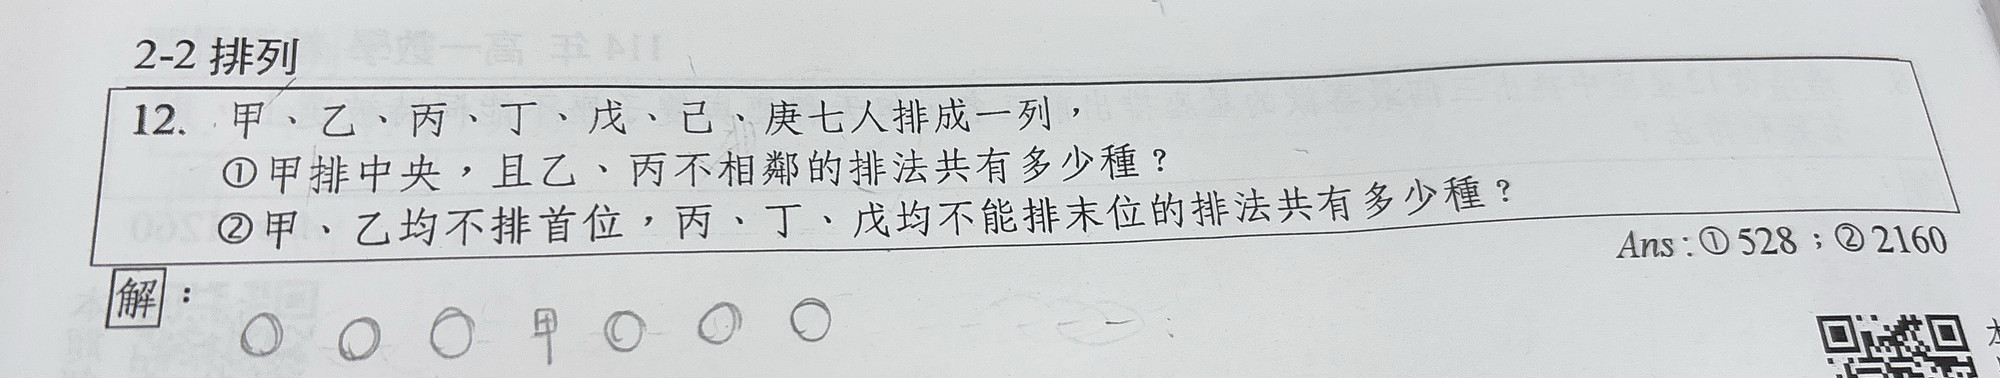 2-2 排列
12. 甲、乙、丙、丁、戊、己、庚七人排成一列，
①甲排中央，且乙、丙不相鄰的排法共有多少種？
②甲、乙均不排首位，丙、丁、戊均不能排末位的排法共有多少種？
Ans : ① 528 ; ② 2160
解：
○ ○ ○ 甲 ○ ○ ○